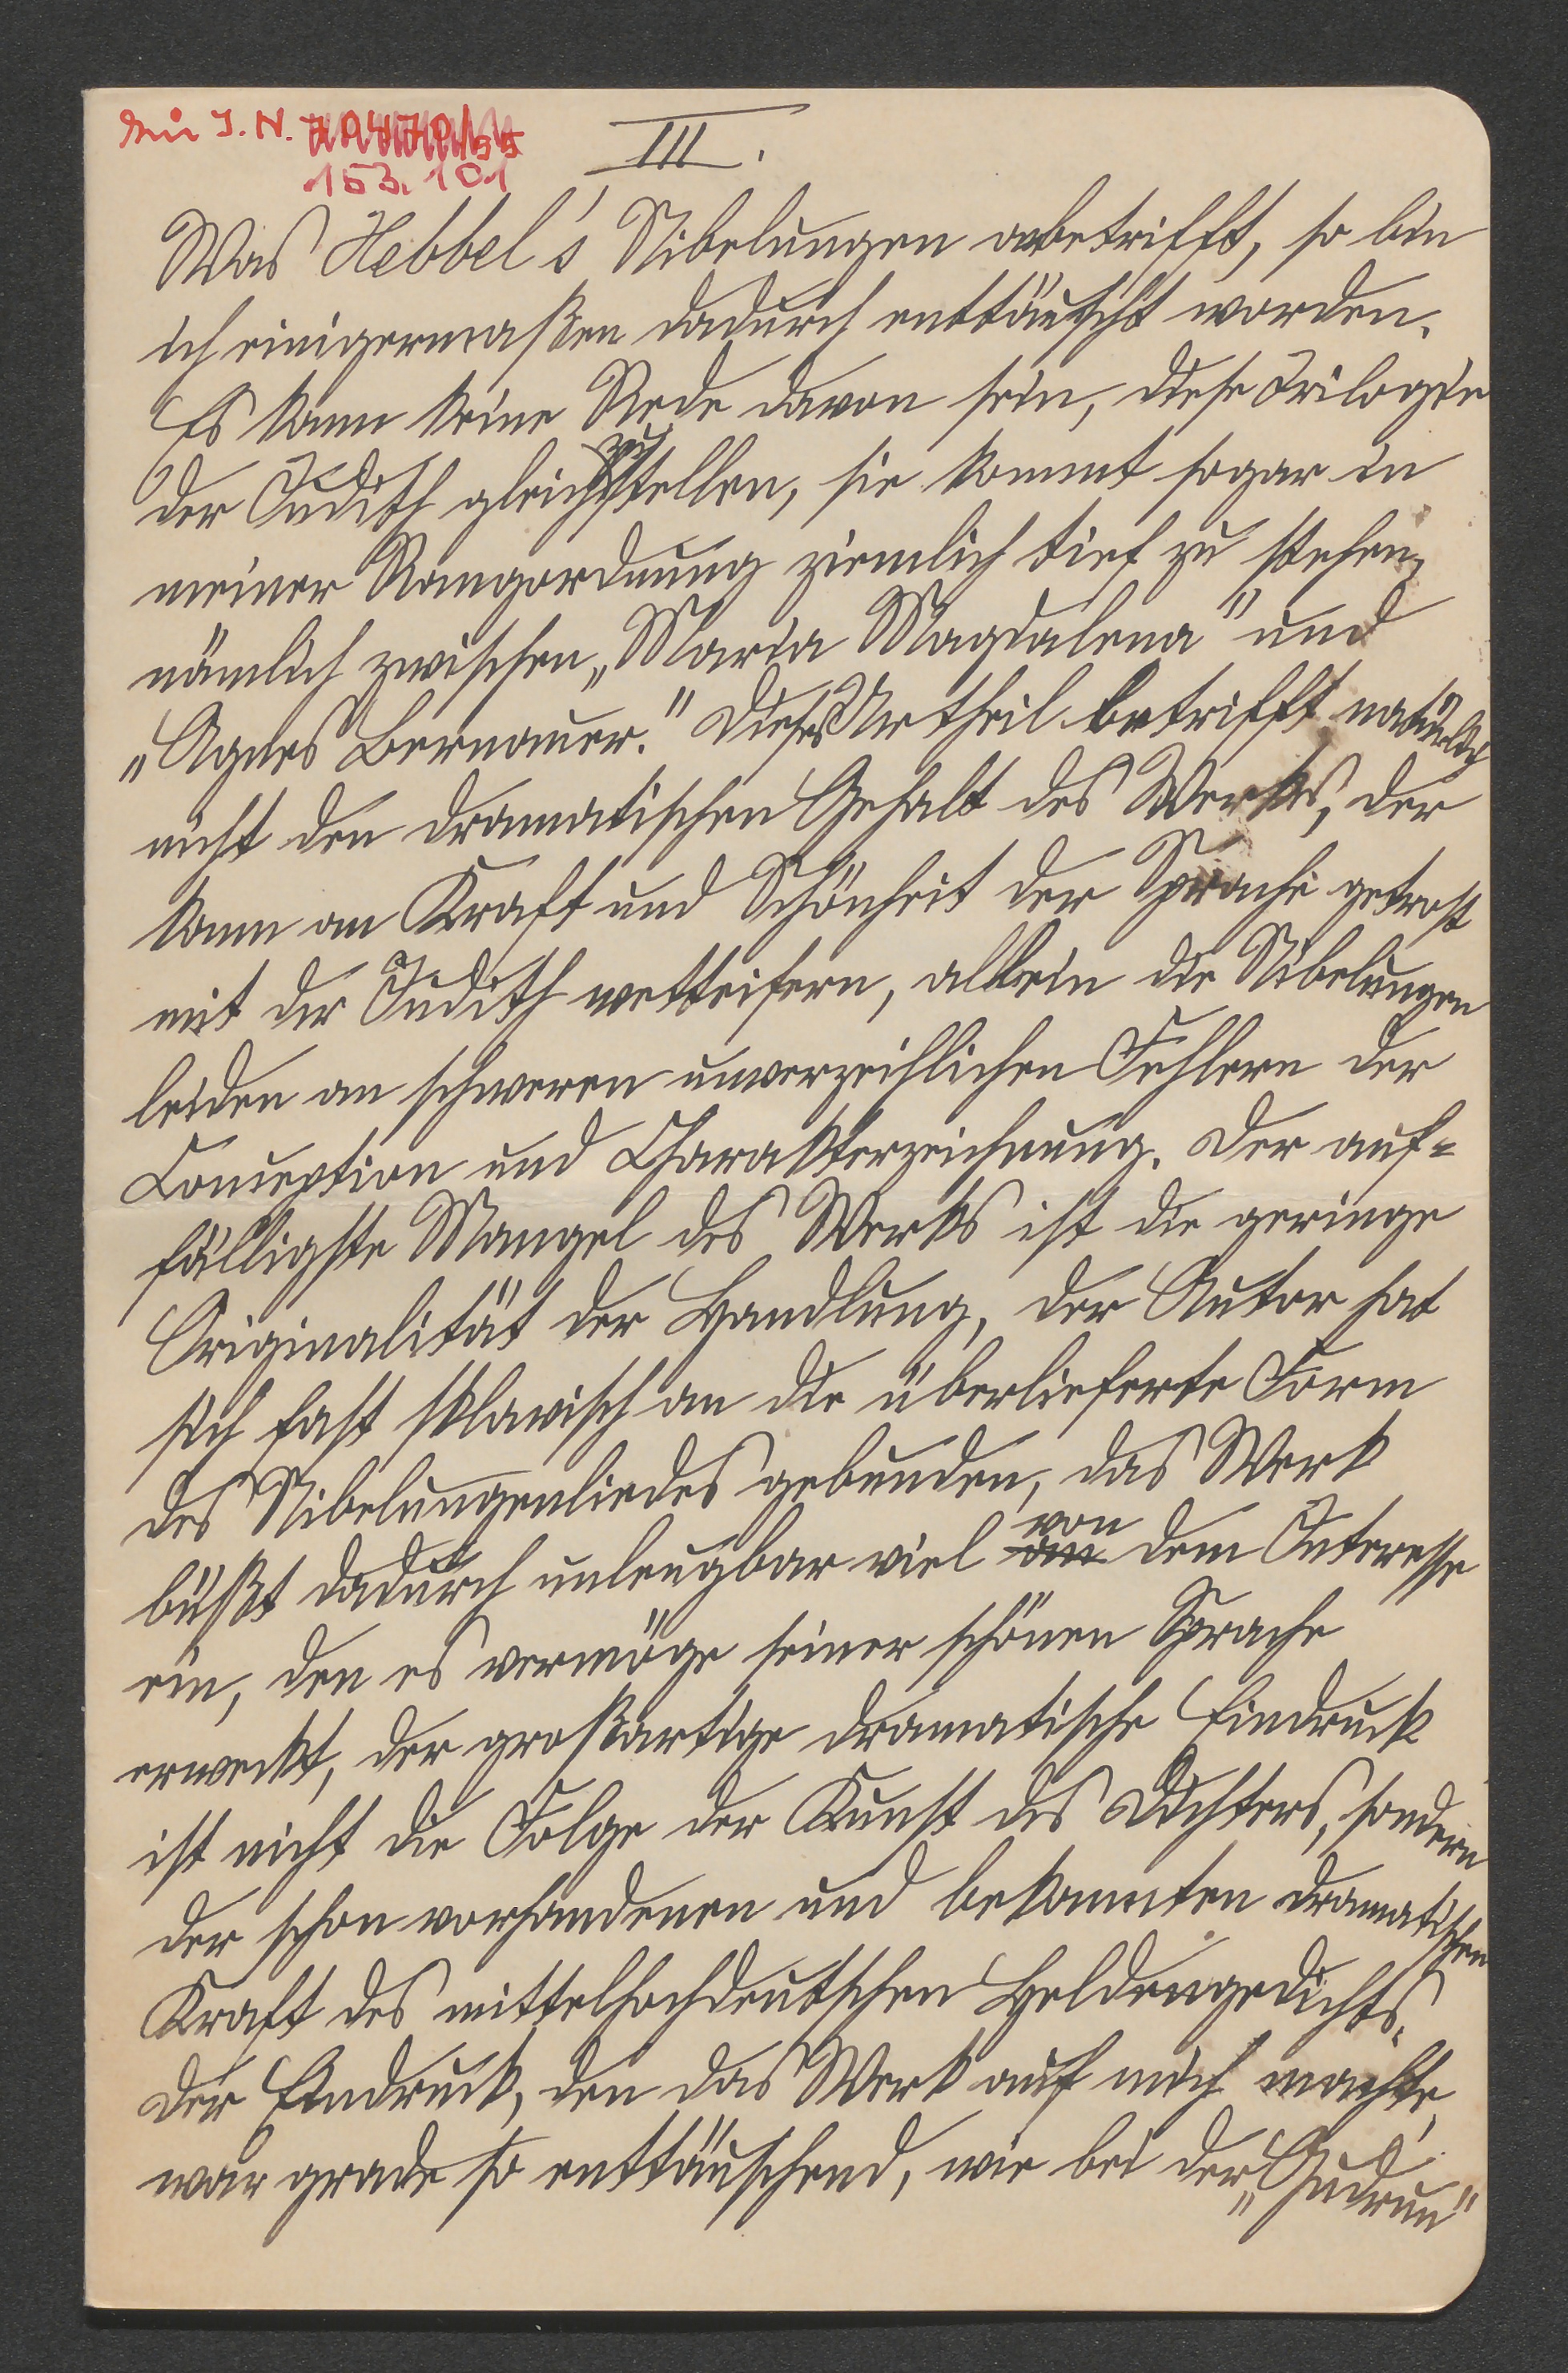 Zu I. N. 70470/55
153.101
III.
Was Hebbel's Nibelungen anbetrifft, so bin
ich einigermaßen dadurch enttäuscht worden.
Es kann keine Rede davon sein, diese Trilogie
der Judith gleichzustellen, sie kommt sogar in
meiner Rangordnung ziemlich tief zu stehen,
nämlich zwischen „Maria Magdalena" und
„Agnes Bernauer." Dieses Urtheil betrifft natürlich
nicht den dramatischen Gehalt des Werks, der
kann an Kraft und Schönheit der Sprache getrost
mit der Judith wetteifern, allein die Nibelungen
leiden an schweren unverzeihlichen Fehlern der
Conception und Charakterzeichnung. Der auf-
fälligste Mangel des Werks ist die geringe
Originalität der Handlung, der Autor hat
sich fast sklavisch an die überlieferte Form
des Nibelungenliedes gebunden, das Werk
büßt dadurch unleugbar viel an von dem Interesse
ein, den es vermöge seiner schönen Sprache
erweckt, der großartige dramatische Eindruck
ist nicht die Folge der Kunst des Dichters, sondern
der schon vorhandenen und bekannten dramatischen
Kraft des mittelhochdeutschen Heldengedichts.
Der Eindruck, den das Werk auf mich machte,
war grade so enttäuschend, wie bei der „Gudrun"